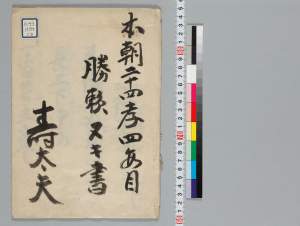 本朝二十四孝四段目
勝頼ヌキ書
寿太夫